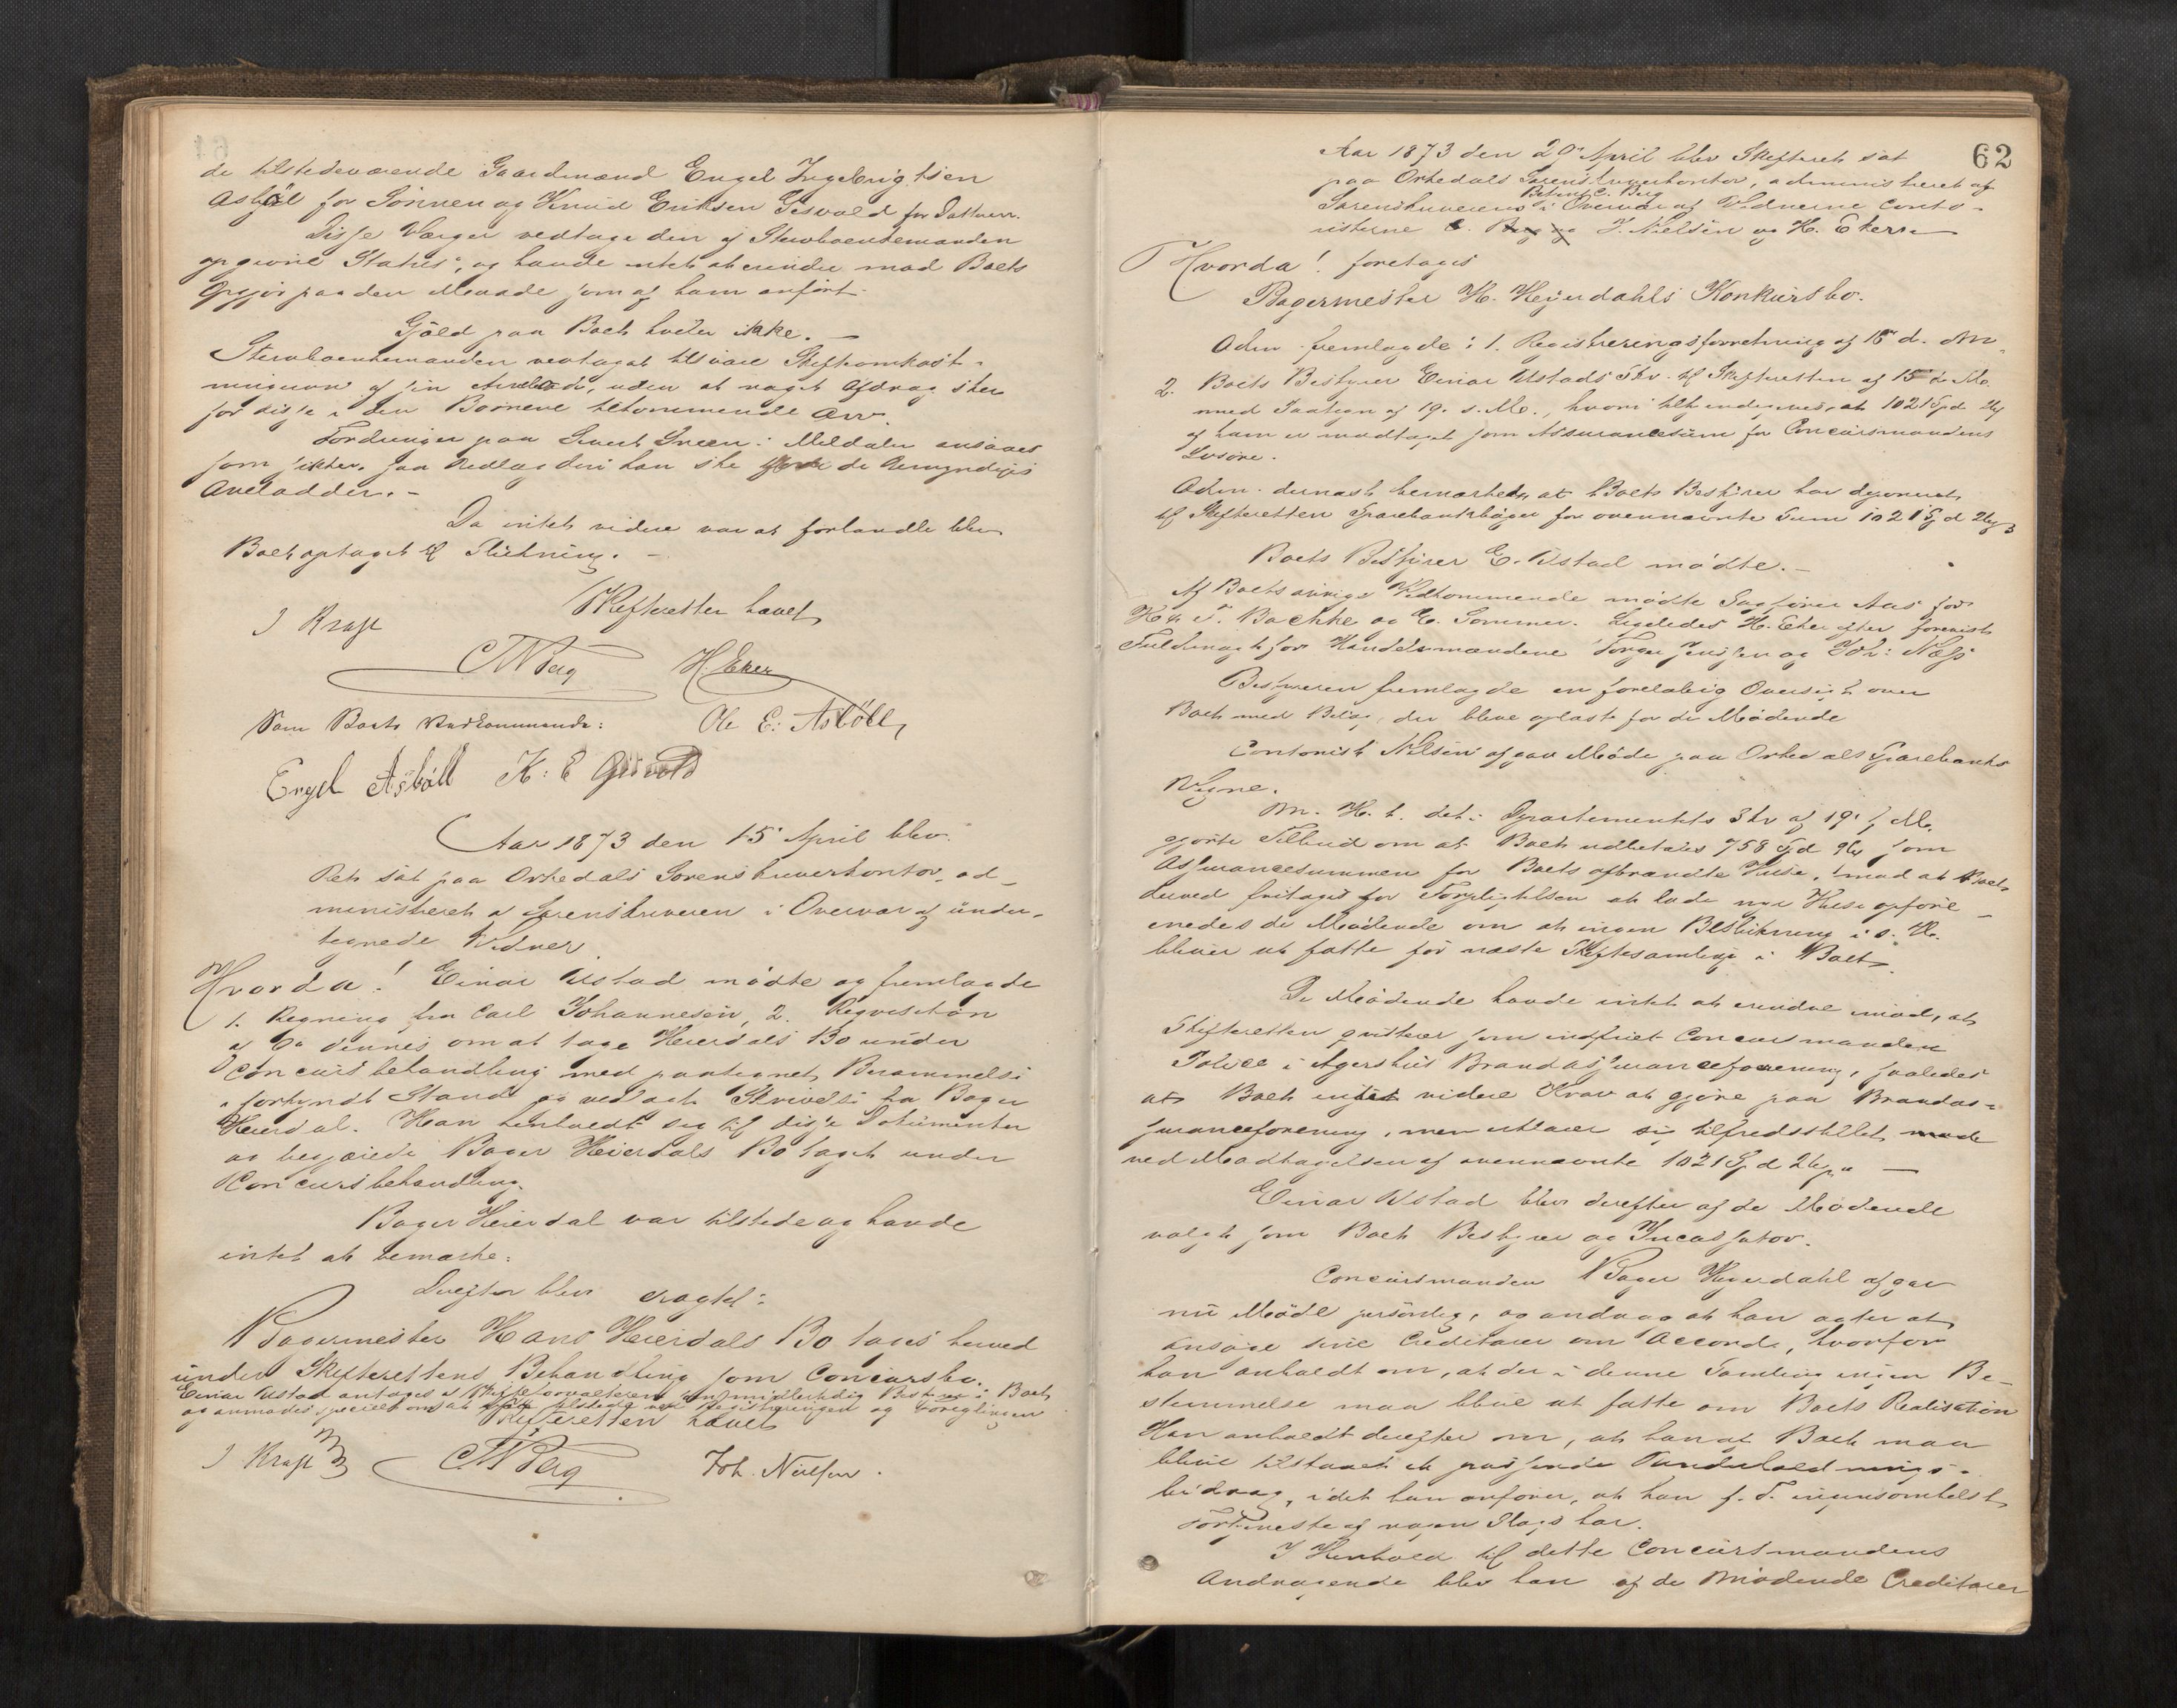 de tilstedeværende Gaardmænd Engel Ingebrigtsen
Asbøl for Sönnen og Knud Eriksen Gisvold for Datteren.
Disse Værger vedtage den af Stervboenkemanden
opgivne Status, og havde intet at erindre mod Boets
Opgjör paa den Maade som af ham anfört.
Gjæld paa Boet hviler ikke. -
Stervboenkemanden vedtaget tilsvare Skifteomkost-
ningerne af sin Arvelod, uden at noget Afdrag sker
for disse i den Börnene tilkommende Arv.
Fordringen paa Sivert Sneen i Meldalen ansaaes
som sikker, saa Udlæg deri kan ske for de Umyndiges
Arvelodder. -
Da intet videre var at forhandle blev
Boet optaget til Slutning. -
Skifteretten hævet
J Krag
CN Berg H. Eker
Som Boets Vedkommende: Ole E. Asbøll,
Engel Asböll K: E Gisvold
Aar 1873 den 15 April blev
Ret sat paa Orkedals Sorenskriverkontor, ad-
ministreret af Sorenskriveren i Overvær af under-
tegnede Vidner
Hvorda! Einar Ustad mödte og fremlagde
1. Regning fra Carl Johannesen, 2. Reqvisition
af dennes om at tage Heierdals Bo under
Concursbehandling med paategnet Berammelse
i forkyndt Stand og vedlagt Skrivelse fra Bager
Heierdal. Han henholdt sig til disse Dokumenter
og begjærede Bager Heierdals Bo taget under
Concursbehandling.
Bager Heierdal var tilstede og havde
intet at bemærke.
Derefter blev eragtet:
Bagermester Hans Heierdals Bo tages herved
under Skifterettens Behandling som Concursbo.
Einar Ustad antages af Skifteforvalteren som midlertidig Bestyrer i Boet
og anmodes specielt om at være tilstede ved Registreringen og Forseglingen
Skifteretten hævet
J Krag CN Berg Joh. Nielsen.
62
Aar 1873 den 29 April blev Skifteret sat
paa Orkedals Sorenskriverkontor, administreret af
Betjent C. Berg
Sorenskriveren i Overvær af Vidnerne Conto-
risterne C. Berg og J. Nielsen og H. Eker. -
Hvorda! foretages
Bagermester H. Heyerdahls Konkursbo.
Adm. fremlagde: 1. Registreringsforretning af 15 d. M.
2. Boets Bestyrer Einar Ustads Skr. til Skifteretten af 15 d. M.
med Paategn af 19. s. M., hvori tilkjendegives, at 1021 Spd 24
af ham er modtaget som Assurancesum for Concursmandens
Lösöre.
Adm. dernæst bemærkede, at Boets Bestyrer har deponeret
til Skifteretten Sparebankböger for ovennævnte Sum 1021 Spd 24
Boets Bestyrer E. Ustad mödte. -
Af Boets övrige Vedkommende mödte Sagförer Aas for
H & F. Bachke og E. Sommer. Ligeledes H. Eker efter forevist
Fuldmagt for Handelsmændene Torger Jenssen og Joh: Næss
Bestyreren fremlagde en foreløbig Oversigt over
Boet med Bilag, der bleve oplæste for de Mödende
Contorist Nielsen afgav Möde paa Orkedals Sparebanks
Vegne.
M. H. t. det i Departementets Skr af 19 f. M.
gjorte Tilbud om at Boet udbetales 758 Spd 96 som
Assurancesummen for Boets afbrændte Huse, mod at Boet
derved fritages for Forpligtelsen at lade nye Huse opföre
enedes de Mödende om at ingen Beslutning i s. H.
bliver at fatte för næste Skiftesamling i Boet.
De Mödende havde intet at erindre imod, at
Skifteretten qvitterer som indfriet Concursmandens
Police i Agershus Brandassuranceforening, saaledes
at Boet intet videre Krav at gjöre paa Brandas-
suranceforening, men erklærer sig tilfredsstillet
ved Modtagelsen af ovennævnte 1021 Spd 24 -
Einar Ustad blev derefter af de Mödende
valgt som Boets Bestyrer og Incassator.
Concursmanden Bager Heyerdahl afgav
nu Möde personlig, og androg at han agter at
ansöge sine Creditorer om Accord, hvorfor
han anholdt om, at der i denne Samling ingen Be-
stemmelse maa blive at fatte om Boets Realisation
Han anholdt derefter om, at han af Boet maa
blive tilstaaet et passende Underholdnings-
bidrag, idet han anförer, at han f. T. ingensomhelst
Fortjeneste af nogen Slags har.
I Henhold til dette Concursmandens
Andragende blev han af de Mödende Creditorer